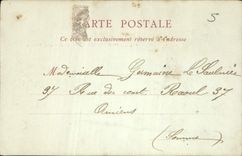 CARTE POSTALE
5
Ce côté est exclusivement réservé à l'adresse
Mademoiselle Germaine Le
37 Rue des cent Raoul 37
Amiens
(Somme)